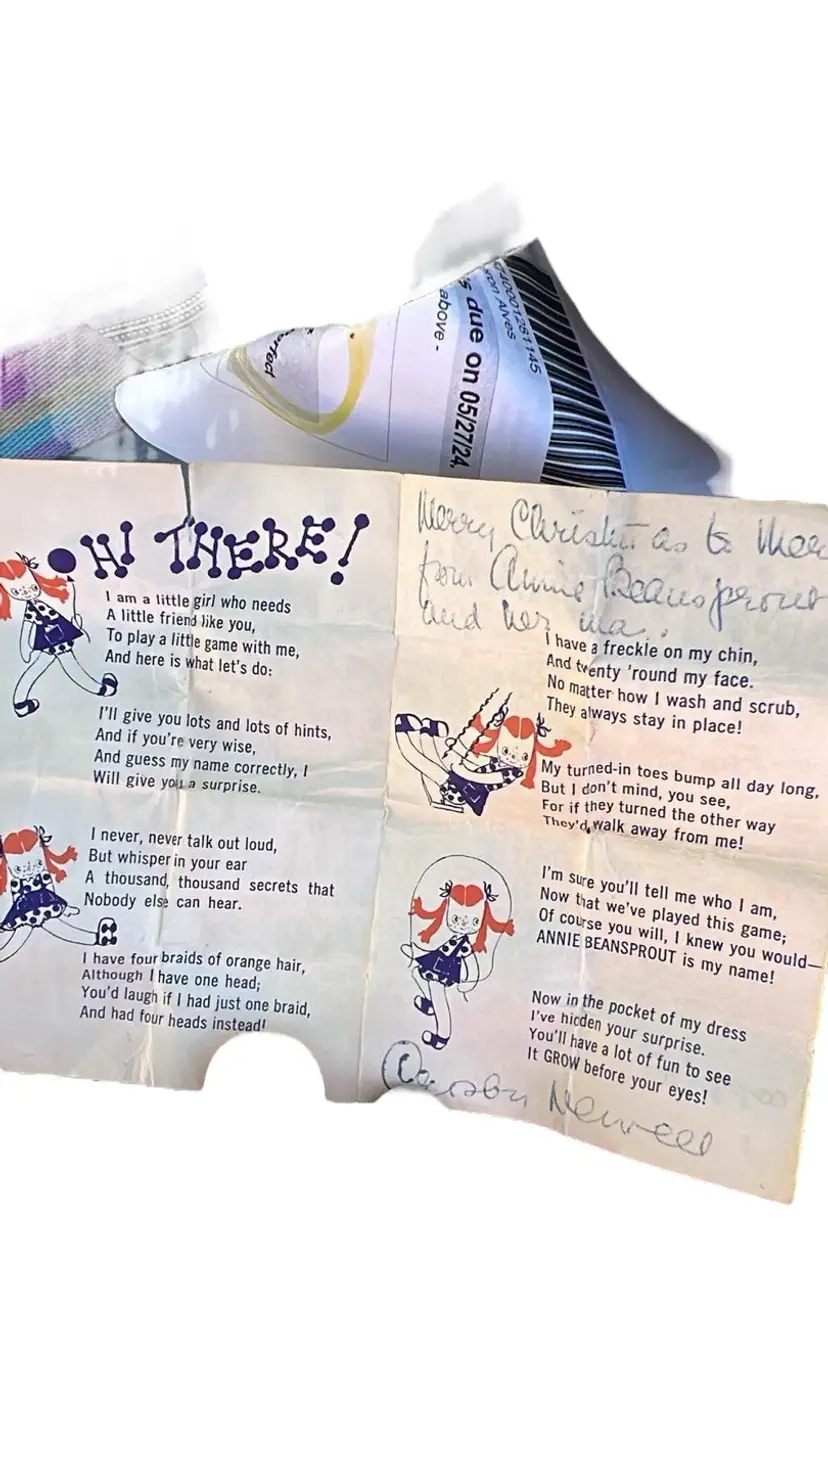 2740001281145
son Alves
s due on 05/27/24.
above -
perfect
HI THERE!
I am a little girl who needs
A little friend like you,
To play a little game with me,
And here is what let's do:
I'll give you lots and lots of hints,
And if you're very wise,
And guess my name correctly, I
Will give you a surprise.
I never, never talk out loud,
But whisper in your ear
A thousand, thousand secrets that
Nobody else can hear.
I have four braids of orange hair,
Although I have one head;
You'd laugh if I had just one braid,
And had four heads instead!
Merry Christmas to
from Annie Beansprout
and her ma.
I have a freckle on my chin,
And twenty 'round my face.
No matter how I wash and scrub,
They always stay in place!
My turned-in toes bump all day long,
But I don't mind, you see,
For if they turned the other way
They'd walk away from me!
I'm sure you'll tell me who I am,
Now that we've played this game;
Of course you will, I knew you would—
ANNIE BEANSPROUT is my name!
Now in the pocket of my dress
I've hidden your surprise.
You'll have a lot of fun to see
It GROW before your eyes!
Newell